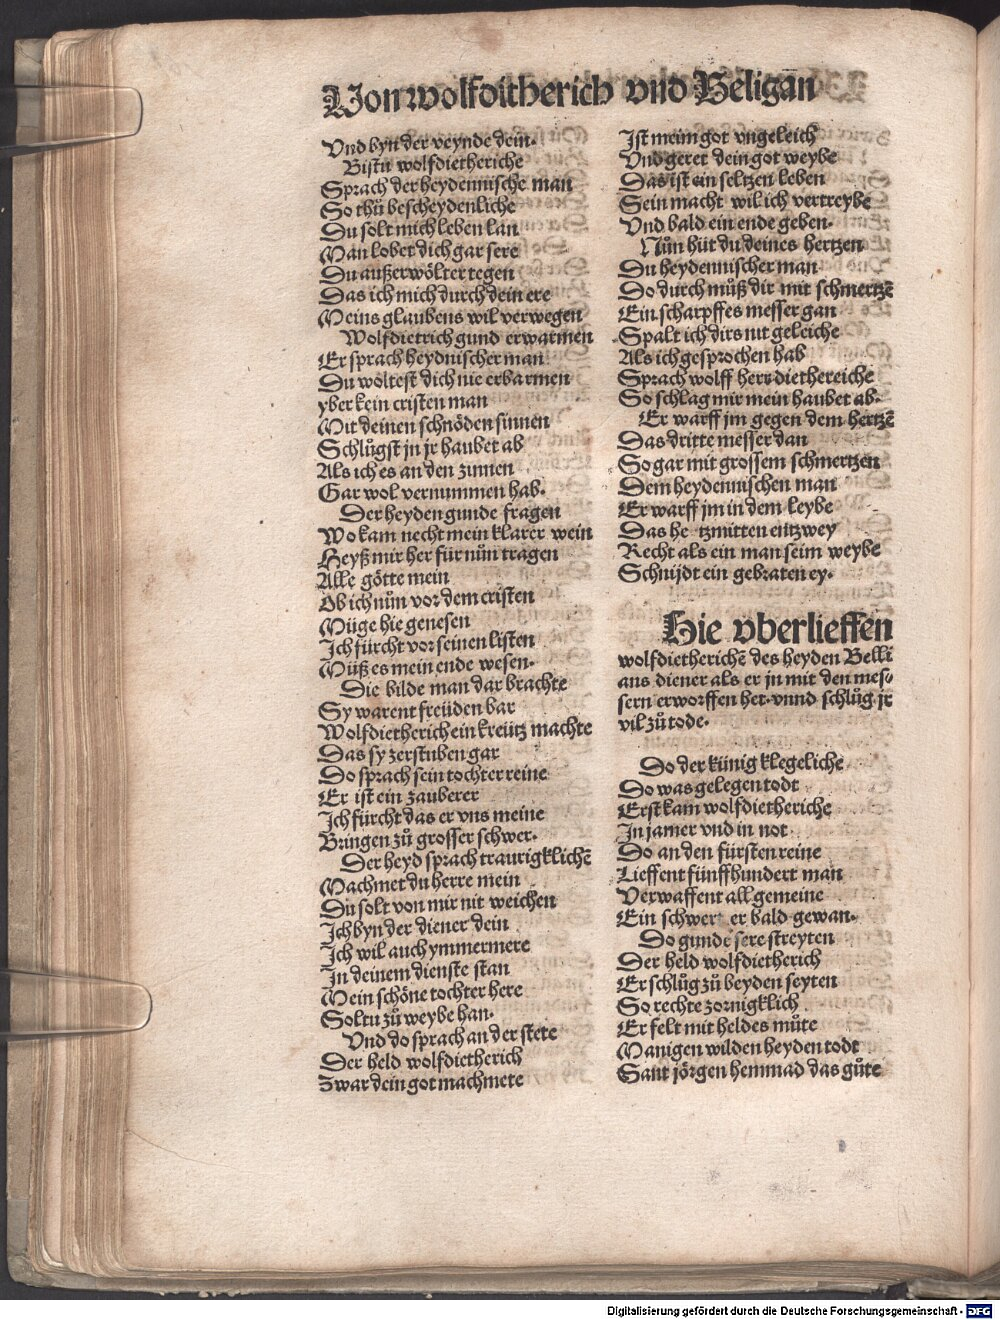 Von wolfditherich vnd Beligan
Vnd byn der veynde dein.
Bistu wolfdietheriche
Sprach der heydennische man
So thů bescheydenliche
Du solt mich leben lan
Man lobet dich gar sere
Du außerwölter tegen
Das ich mich durch dein ere
Meins glaubens wil verwegen
Wolfdietrich gund erwarmen
Er sprach heydnischer man
Du wöltest dich nie erbarmen
yber kein cristen man
Mit deinen schnöden sinnen
Schlůgst jn jr haubet ab
Als ich es an den zinnen
Gar wol vernummen hab.
Der heyden gunde fragen
Wo kam necht mein klarer wein
Heyß mir her für nůn tragen
Alle götte mein
Ob ich nůn vor dem cristen
Müge hie genesen
Ich fürcht vor seinen listen
Müß es mein ende wesen.
Die bilde man dar brachte
Sy warent freüden bar
Wolfdietherich ein kreütz machte
Das sy zerstuben gar
Do sprach sein tochter reine
Er ist ein zauberer
Ich fürcht das er vns meine
Bringen zů grosser schwer.
Der heyd sprach traurigklichē
Machmet du herre mein
Du solt von mir nit weichen
Ich byn der diener dein
Ich wil auch ymmermere
In deinem dienste stan
Mein schöne tochter here
Soltu zů weybe han.
Vnd do sprach an der stete
Der held wolfdietherich
Zwar dein got machmete
Ist meim got vngeleich
Vnd geret dein got weybe
Das ist ein seltzen leben
Sein macht wil ich vertreybē
Vnd bald ein ende geben.
Nůn hüt du deines hertzen
Du heydennischer man
Do durch můß dir mit schmertzē
Ein scharpffes messer gan
Spalt ich dirs nit geleiche
Als ich gesprochen hab
Sprach wolff herr diethereiche
So schlag mir mein haubet ab.
Er warff jm gegen dem hertzē
Das dritte messer dan
So gar mit grossem schmertzen
Dem heydennischen man
Er warff jm in dem leybe
Das he tz mitten entzwey
Recht als ein man seim weybe
Schnijdt ein gebraten ey.
Hie vberlieffen
wolfdietherichē des heyden Belli
ans diener als er jn mit den mes⸗
sern erworffen het. vnnd schlůg jr
vil zů tode.
Do der künig klegeliche
Do was gelegen todt
Erst kam wolfdietheriche
In jamer vnd in not
Do an den fürsten reine
Lieffent fünffhundert man
Verwaffent all gemeine
Ein schwert er bald gewan.
Do gunde sere streyten
Der held wolfdietherich
Er schlůg zů beyden seyten
So rechte zornigklich
Er felt mit heldes můte
Manigen wilden heyden todt
Sant jörgen hemmad das gůte
Digitalisierung gefördert durch die Deutsche Forschungsgemeinschaft - DFG